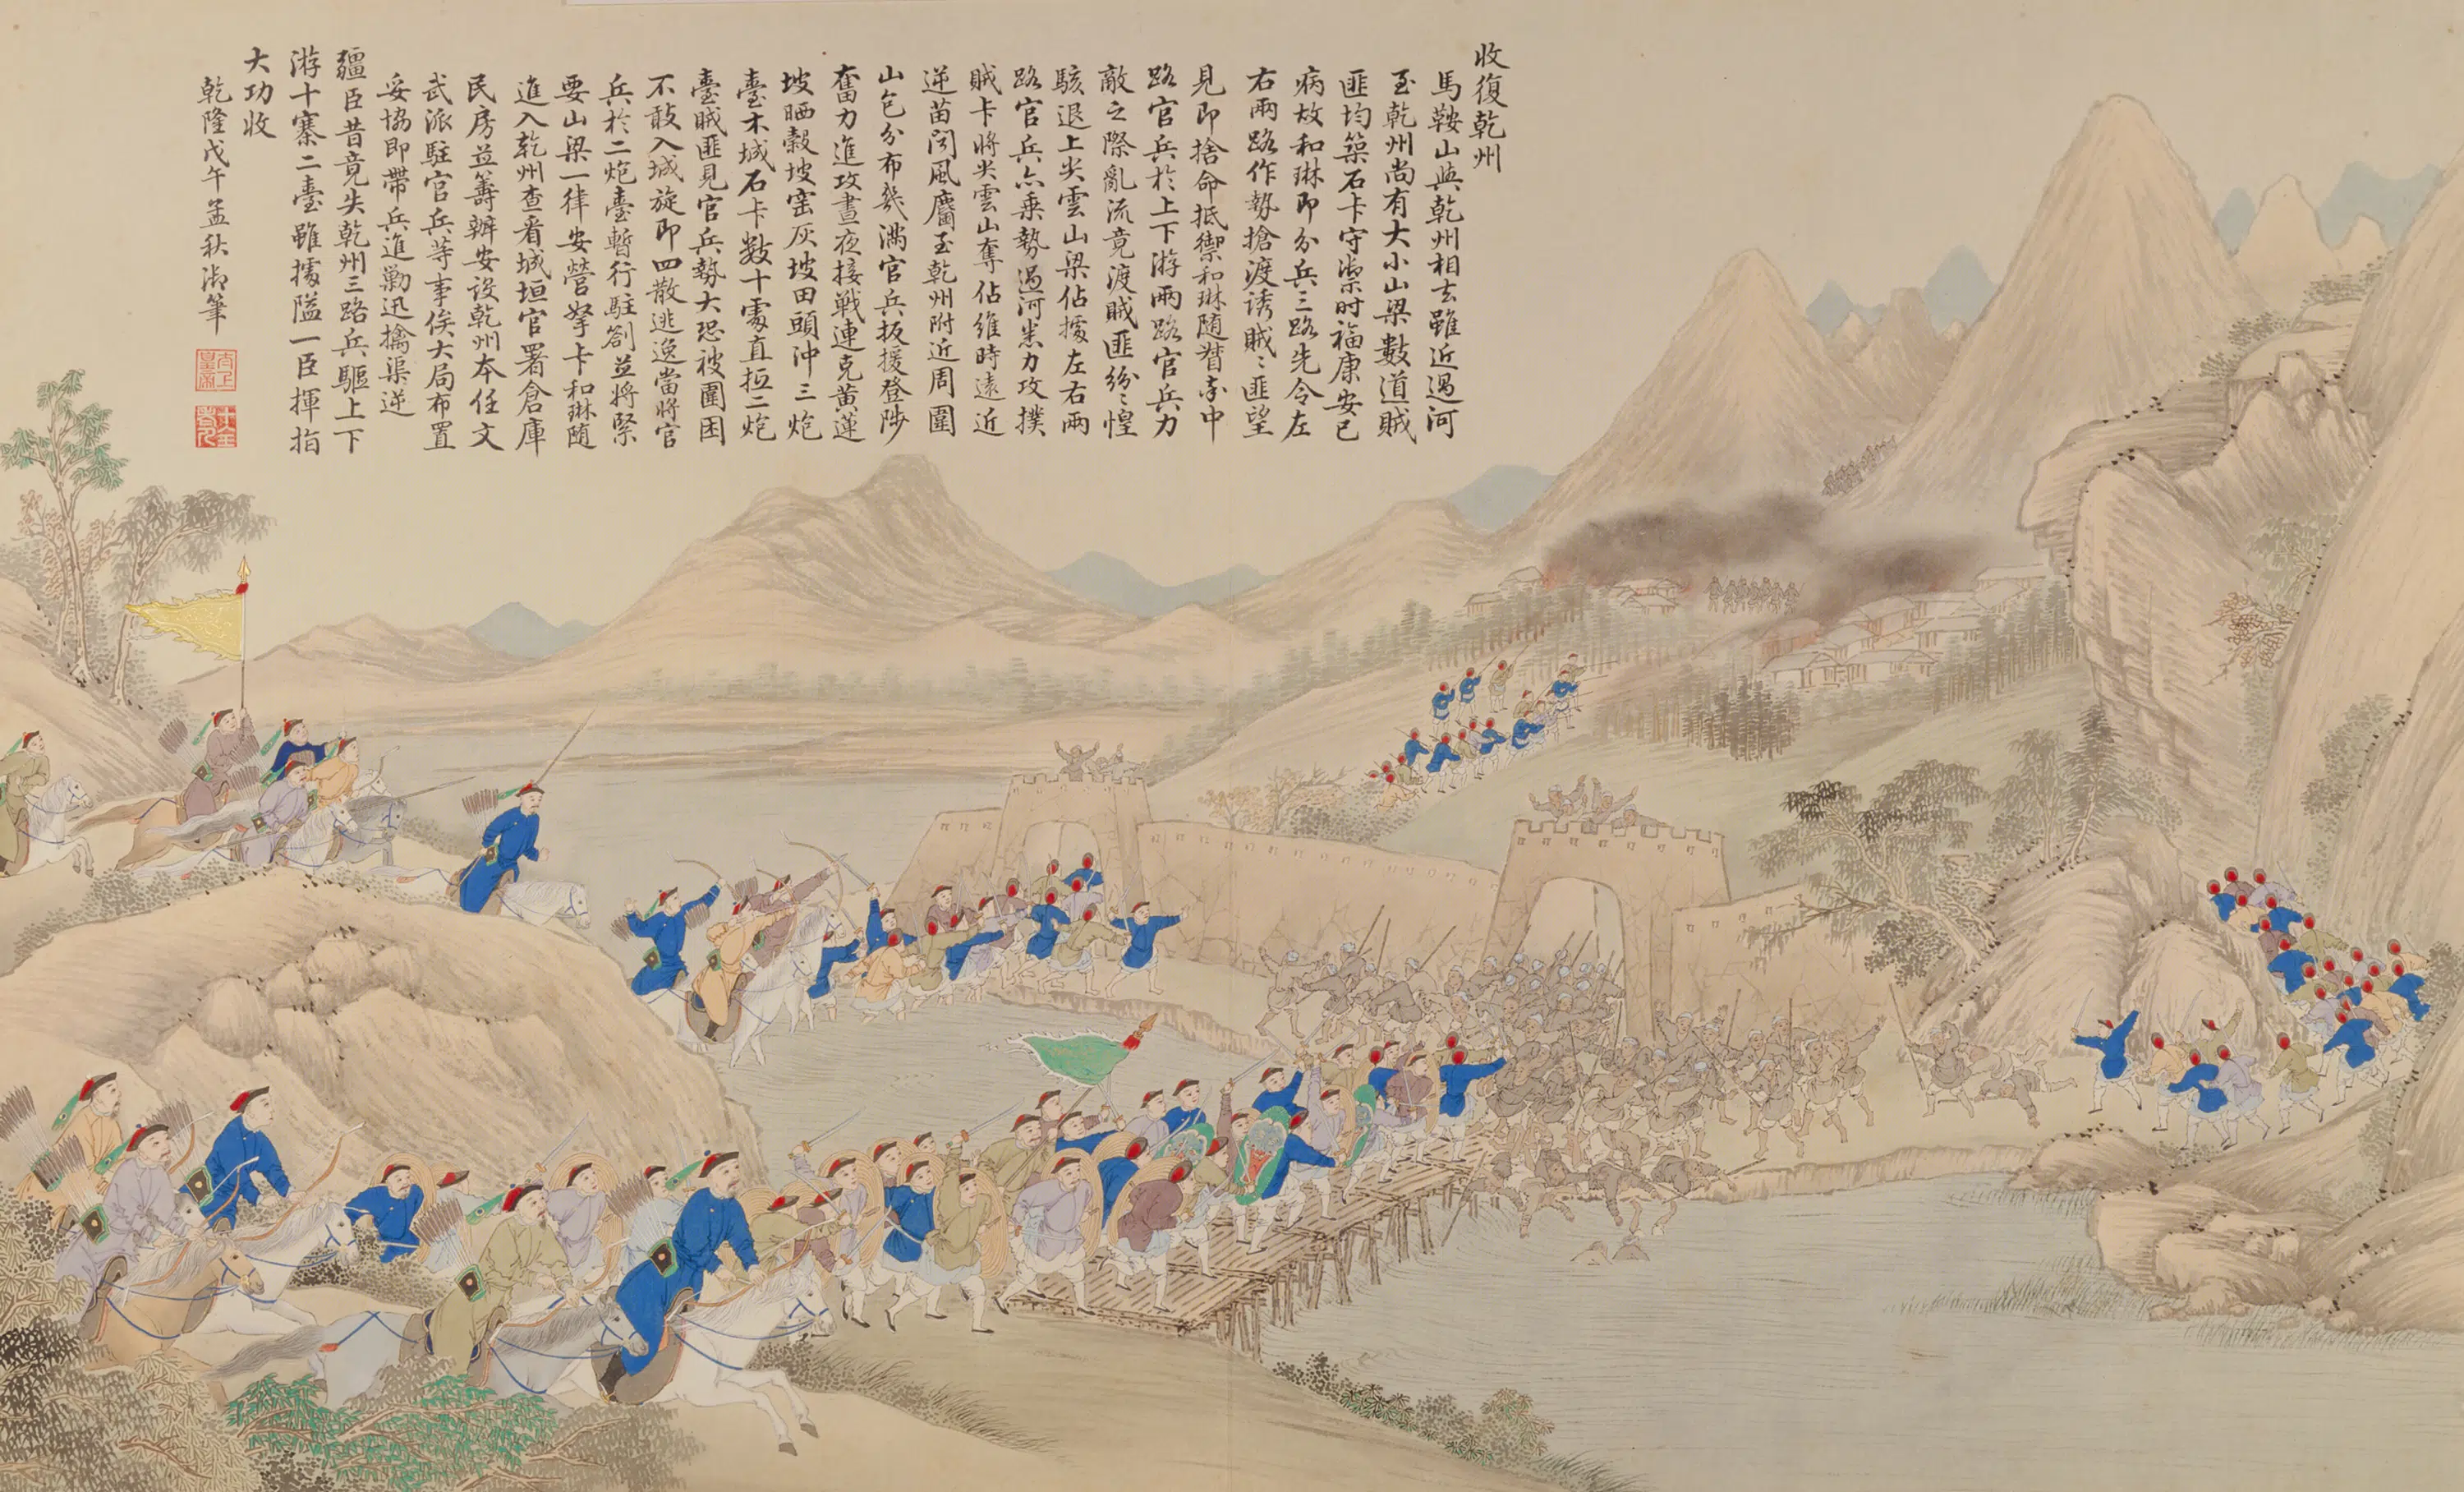 收復乾州
馬鞍山與乾州相去雖近過河
至乾州尚有大小山梁數道賊
匪均築石卡守禦時福康安已
病故和琳即分兵三路先令左
右兩路作勢搶渡誘賊〻匪望
見即捨命抵禦和琳随督率中
路官兵於上下游兩路官兵力
敵之際亂流竟渡賊匪紛〻惶
駭退上尖雲山梁佔據左右兩
路官兵亦乗勢過河悉力攻撲
賊卡將尖雲山奪佔維時遠近
逆苗聞風麕至乾州附近周圍
山包分布幾滿官兵扳援登陟
奮力進攻晝夜接戰連克黃蓮
坡晒穀坡窑灰坡田頭沖三炮
臺木城石卡數十處直抵二炮
臺賊匪見官兵勢大恐被圍困
不敢入城旋即四散逃逸當將官
兵於二炮臺暫行駐劄並將緊
要山梁一律安營拏卡和琳随
進入乾州查看城垣官署倉庫
民房並籌辦安設乾州本任文
武派駐官兵等事俟大局布置
妥協即帶兵進勦迅擒渠逆
疆臣昔竟失乾州三路兵驅上下
游十寨二臺雖據隘一臣揮指
大功收
乾隆戊午孟秋御筆
太上皇帝
十全老人